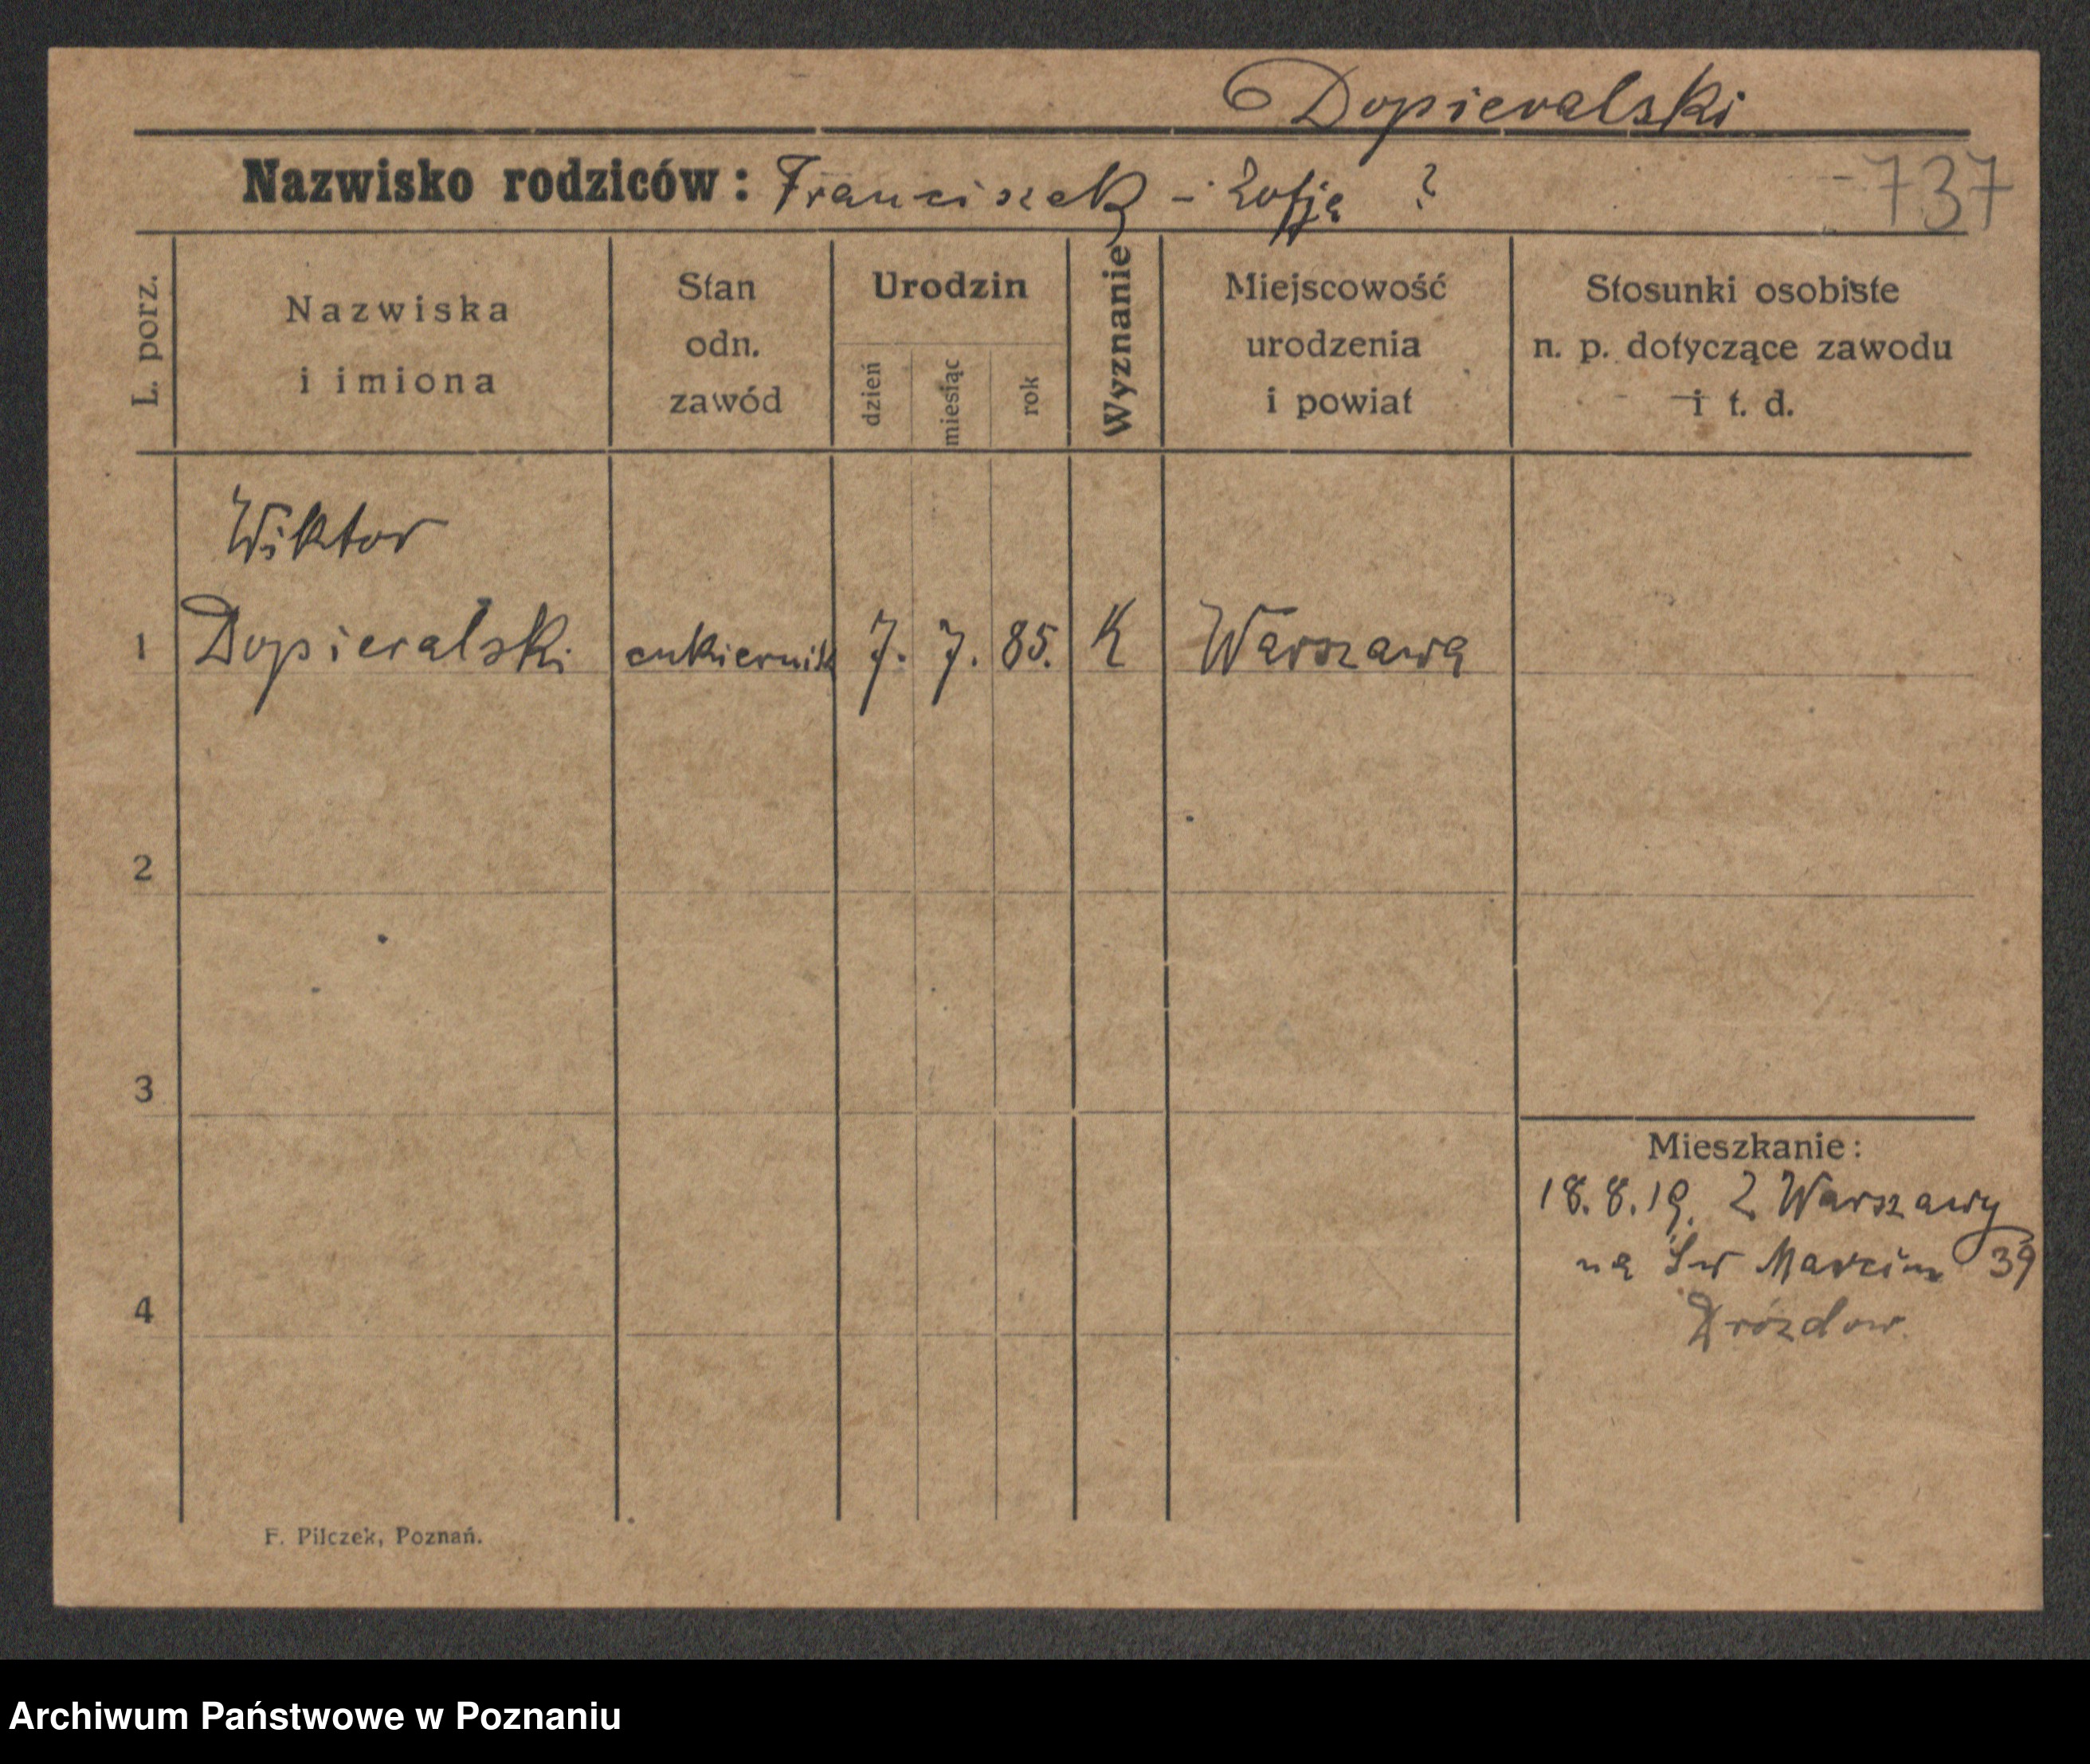 Dopieralski
Nazwisko rodziców: Franciszek - Zofja ?
737
L. porz.
Nazwiska
i imiona
Stan
odn.
zawód
Urodzin
dzień
miesiąc
rok
Wyznanie
Miejscowość
urodzenia
i powiat
Stosunki osobiste
n. p. dotyczące zawodu
i t. d.
Wiktor
1 Dopieralski cukiernik 7. 7. 85. K Warszawa
2
3
4
Mieszkanie:
18.8.19. z Warszawy
na Św Marcin 39
Drózdow.
F. Pilczek, Poznań.
Archiwum Państwowe w Poznaniu